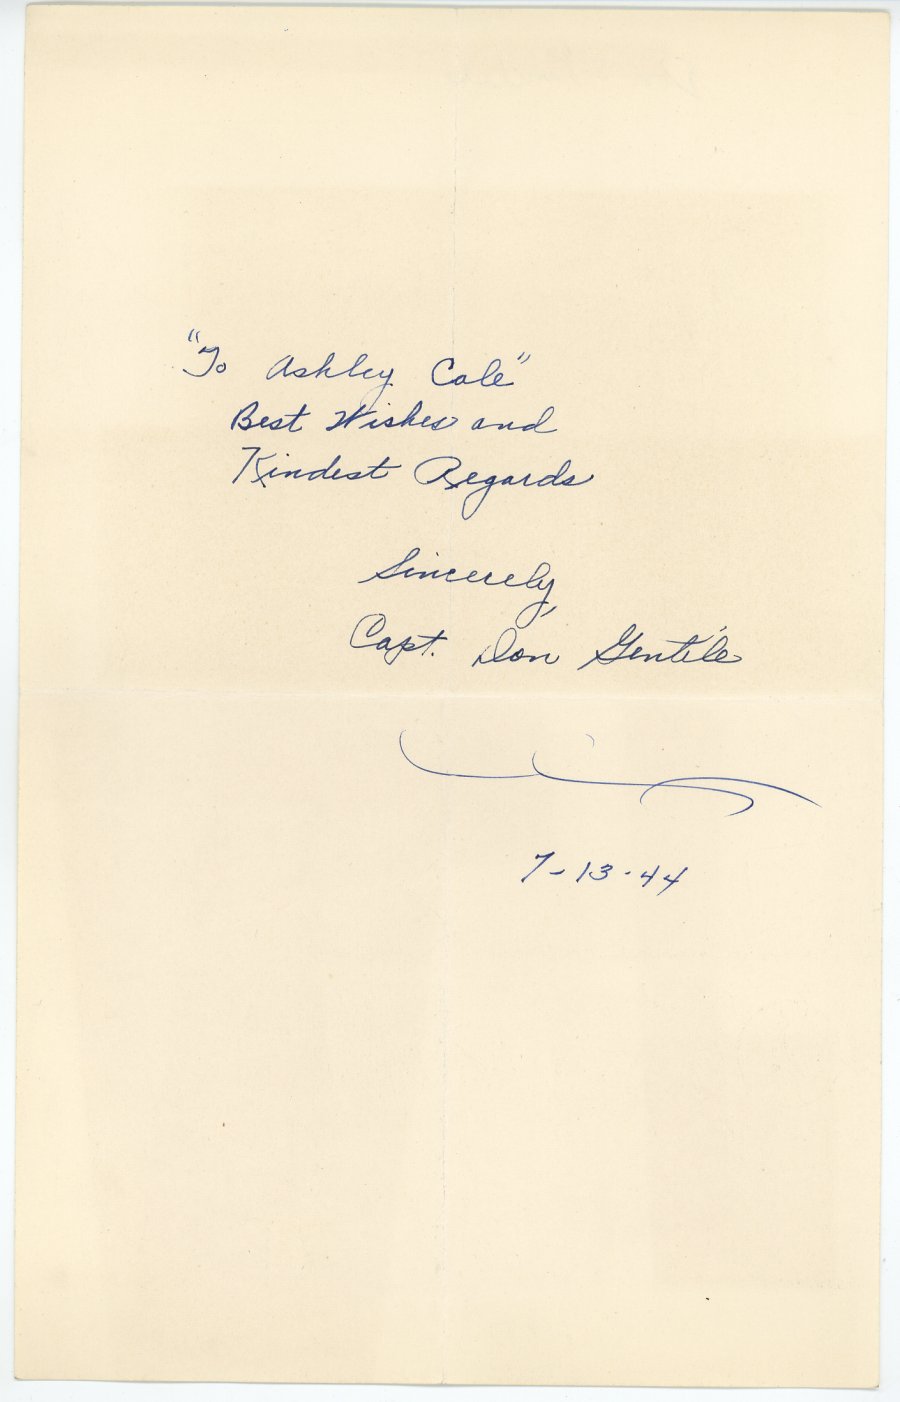 "To Ashley Cole"
Best Wishes and
Kindest Regards
Sincerely,
Capt. Don Gentile
7-13-44